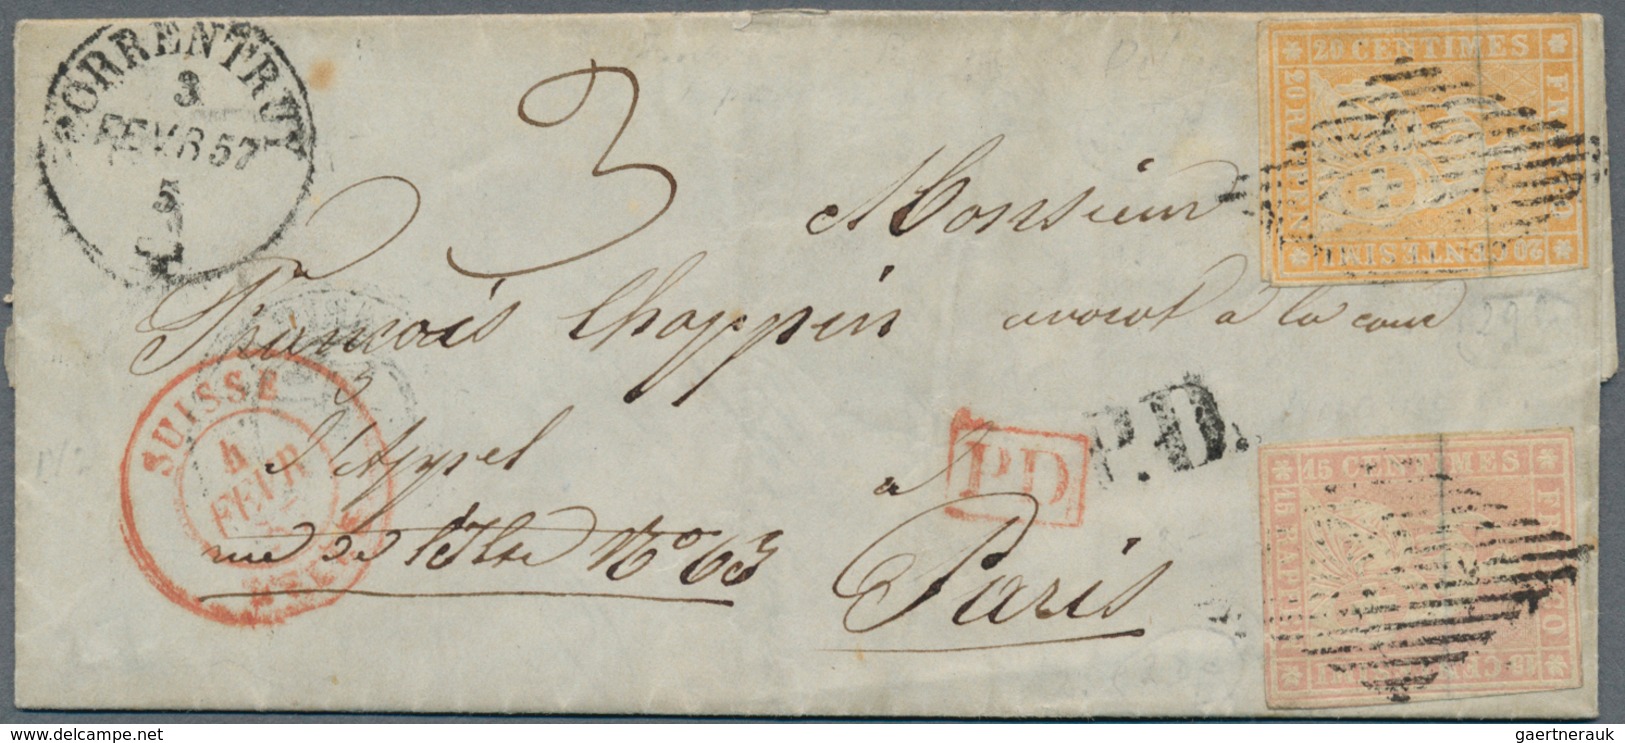 PORRENTRUY
3
FEVR 57
5
3
Monsieur
François Choppin avocat à la cour
d'Appel
à
rue de No 63
Paris
SUISSE
4
FEVR
PD
P.D.
20 CENTIMES
FRANCO
20 CENTESIMI
20 RAPPEN
15 CENTIMES
FRANCO
15 CENTESIMI
15 RAPPEN
gaertnerauk